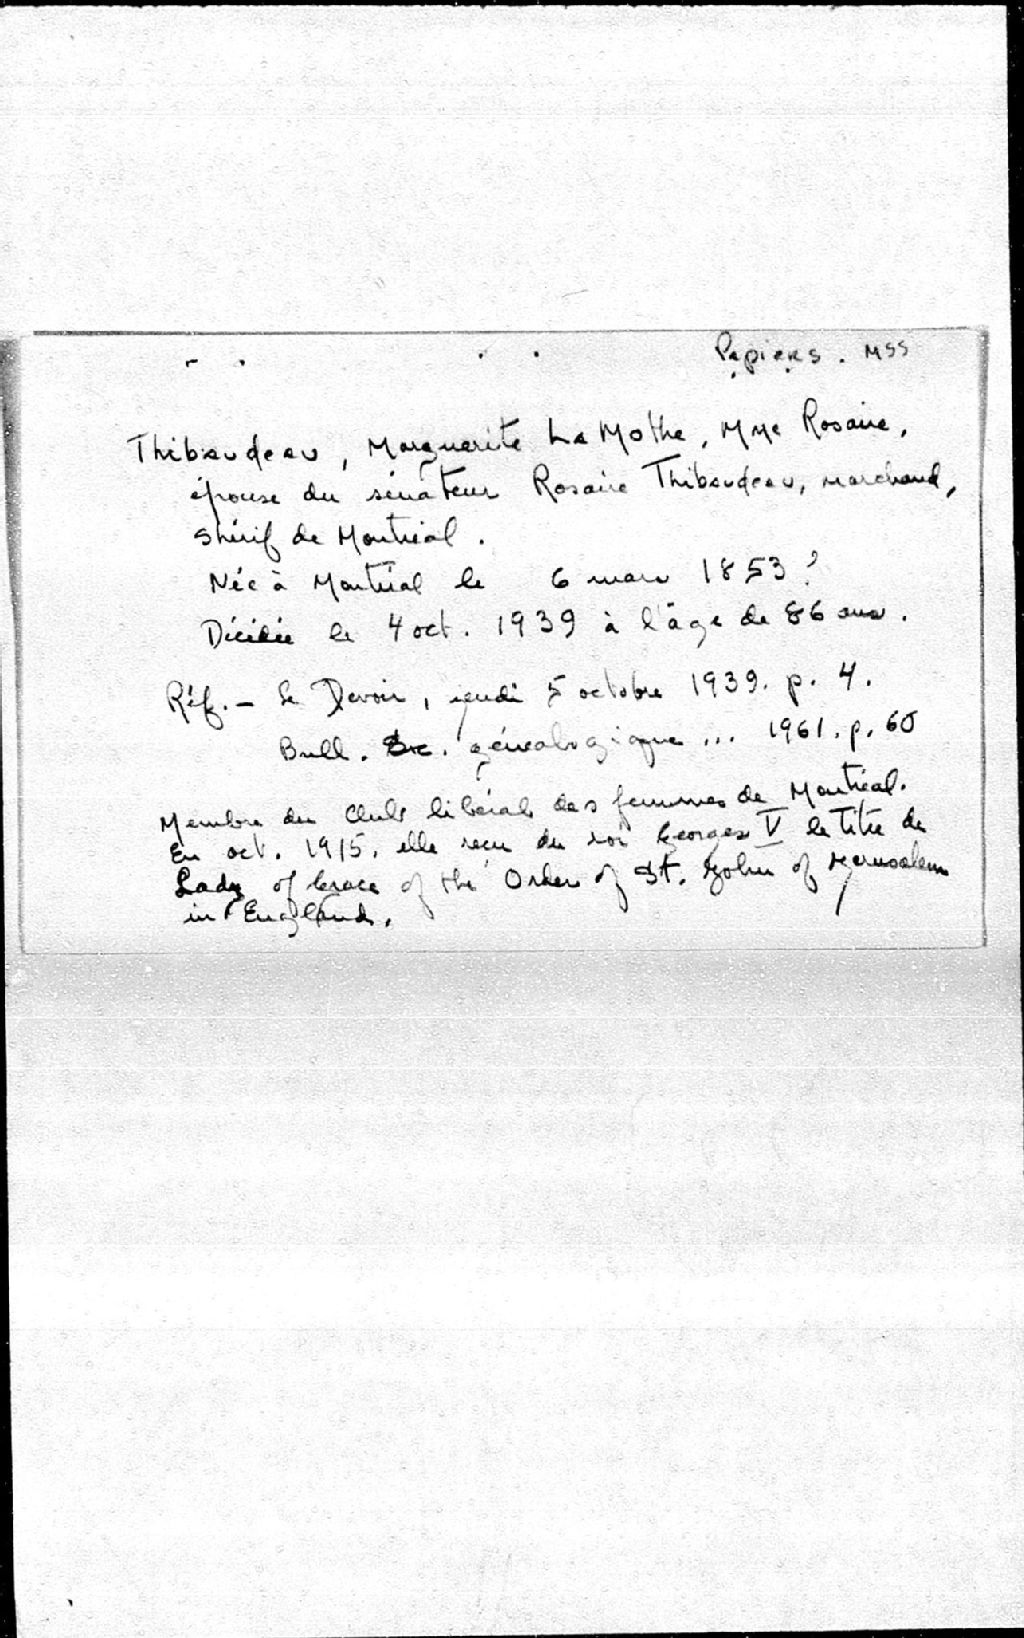 Papiers. MSS
Thibaudeau, Marguerite La Mothe, Mme Rosaire,
épouse du sénateur Rosaire Thibaudeau, marchand,
shérif de Montréal.
Née à Montréal le 6 mars 1853?
Décédée le 4 oct. 1939 à l'âge de 86 ans.
Réf. - Le Devoir, jeudi 5 octobre 1939. p. 4.
Bull. Soc. généalogique ... 1961. p. 60
Membre du Club libéral des femmes de Montréal.
En oct. 1915, elle reçu du roi Georges V le titre de
Lady of Grace of the Order of St. John of Jerusalem
in England.